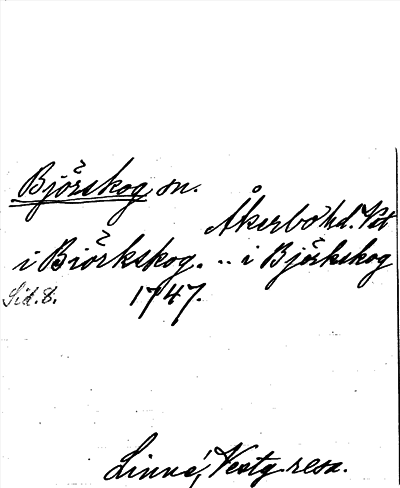 Björskog sn.
Åkerbo hd. Vst
i Biörkskog. .. i Björkskog
Sid. 8. 1747.
Linné, Vestg. resa.